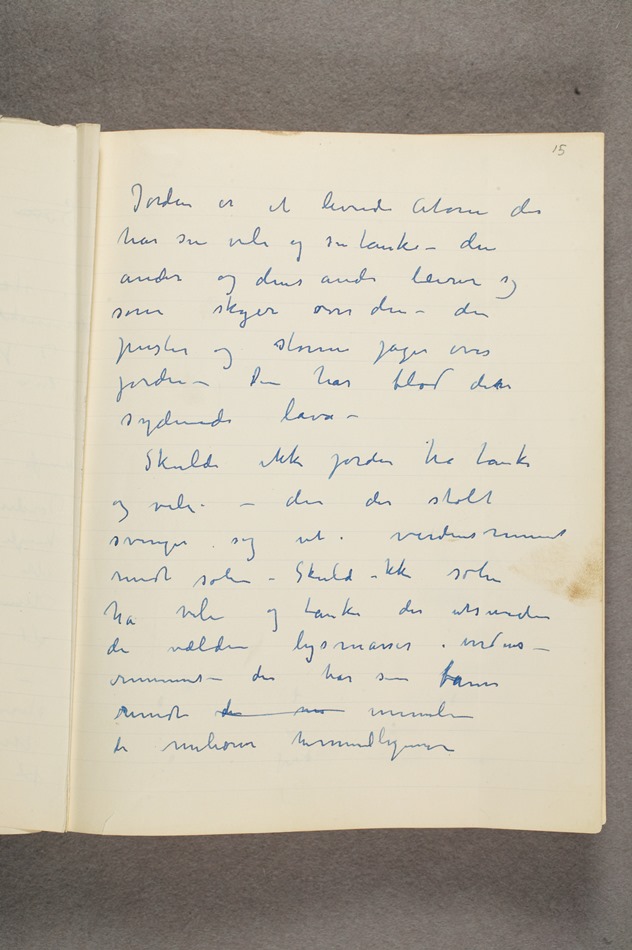 15
Jorden er et levende Atom der
har sin vilje og sin tanke – den
ander og dens ande lever sig
som skyer over den – den
puster og storme jager over
jorden – Den har blod den
sydende lava –
Skulde ikke jorden ha tanke
og vilje – den der stolt
svinger sig ut i verdensrummet
rundt solen – Skulde ikke solen
ha vilje og tanke der utsender
de vældige lysmasser i verdens–
rummet – der har sin bane
rundt
de milioner himmellegemer